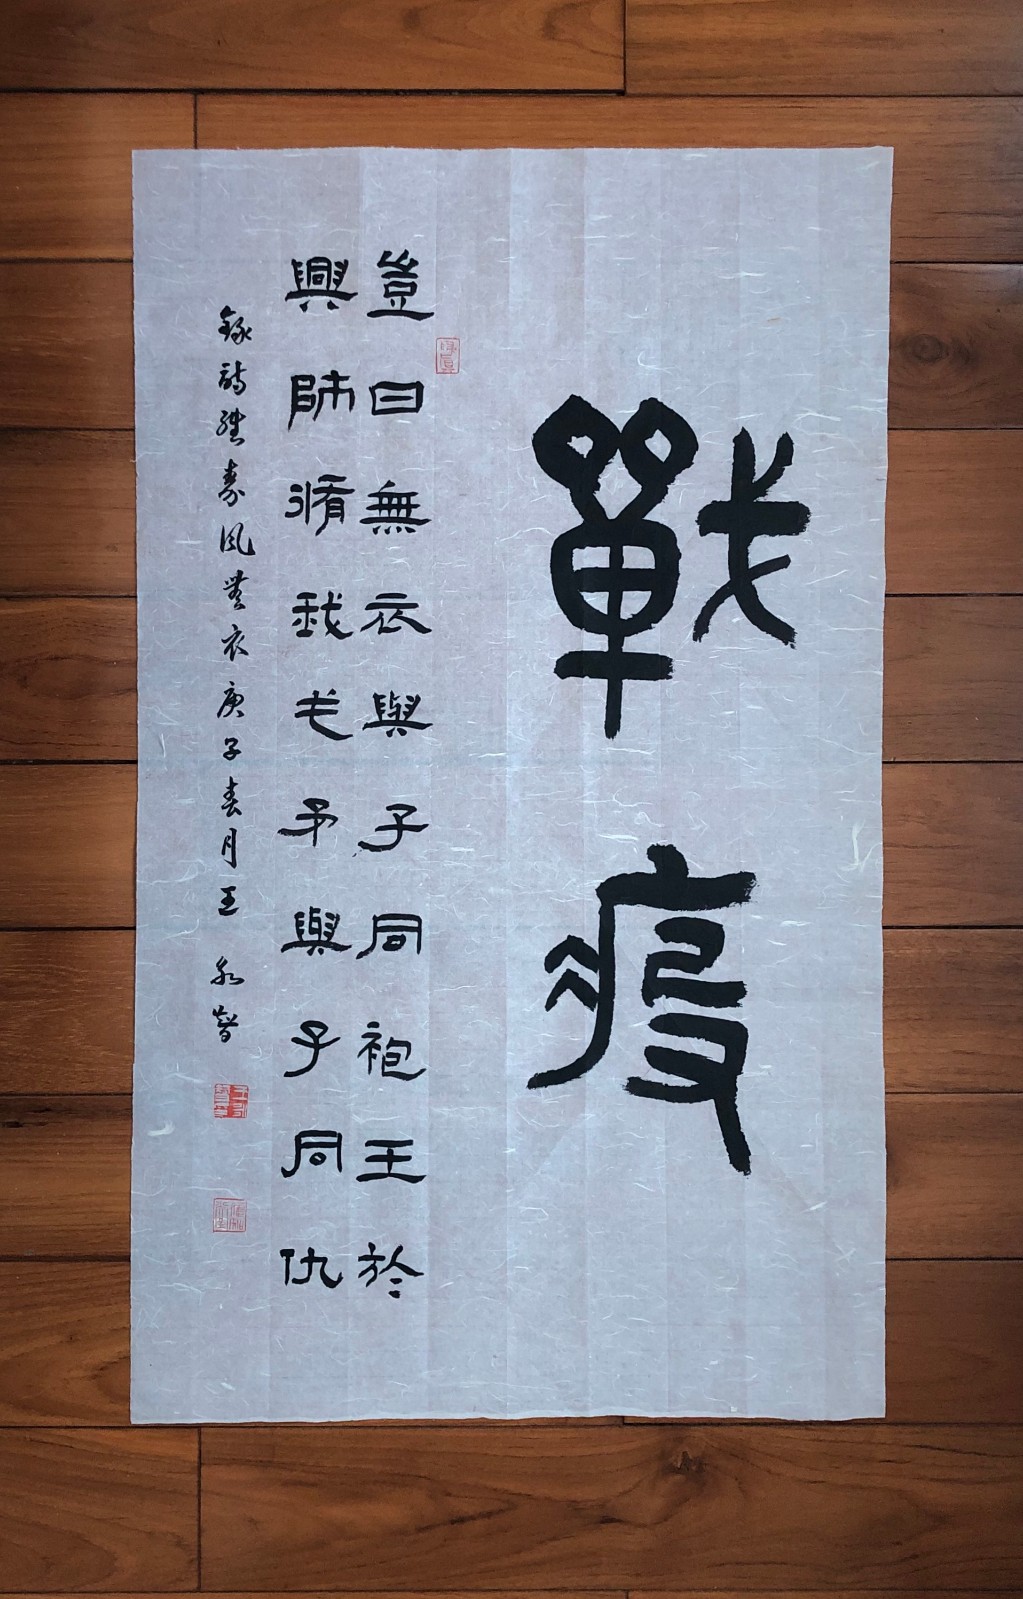 戰疫
豈曰無衣與子同袍王於
興師脩我戈矛與子同仇
錄詩經秦風無衣庚子春月王永智